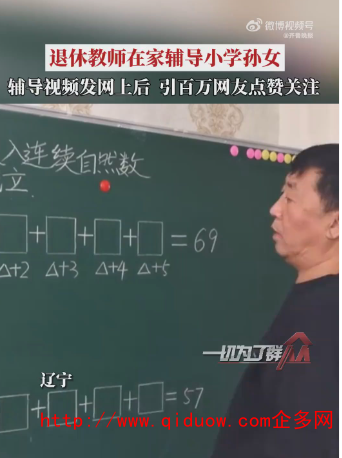 微博视频号
@齐鲁晚报
退休教师在家辅导小学孙女
辅导视频发网上后 引百万网友点赞关注
入连续自然数
立.
□+□+□+□=69
Δ+2 Δ+3 Δ+4 Δ+5
一切为了群众
辽宁
□+□+□+□=57
http://www.qiduow.com企多网